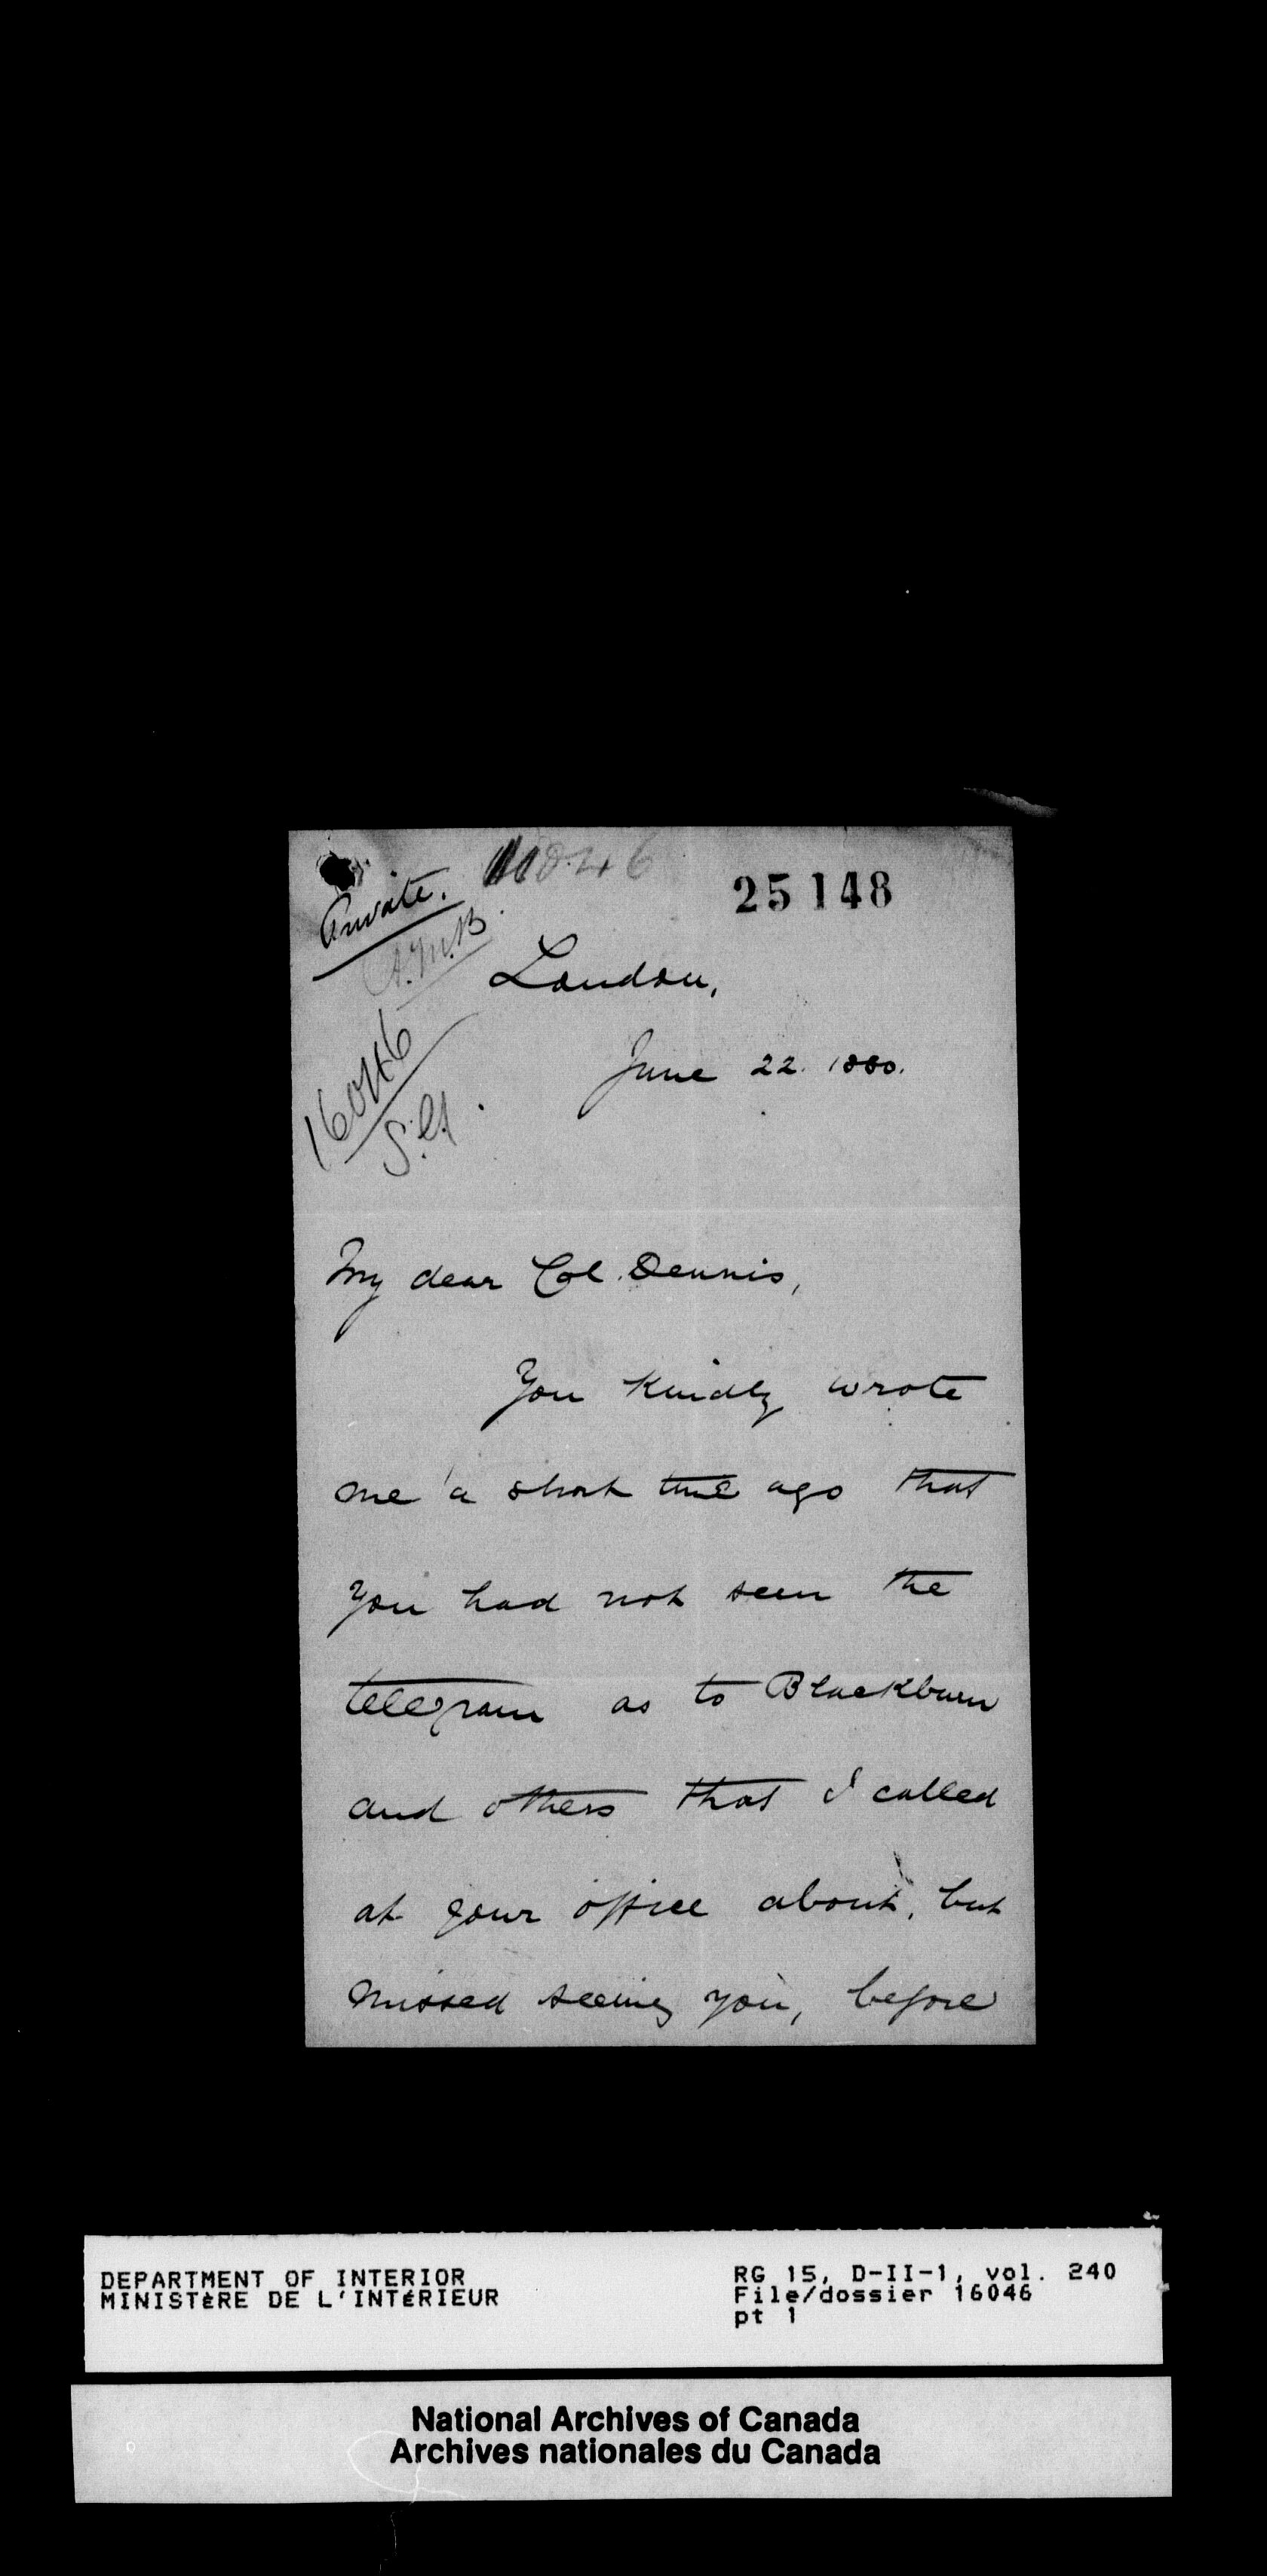 Private.
25148
A.M.B.
London,
16046
June 22. 1880.
My dear Col. Dennis,
You kindly wrote
me a short time ago that
you had not seen the
telegram as to Blackburn
and others that I called
at your office about, but
missed seeing you, before
DEPARTMENT OF INTERIOR
MINISTÈRE DE L'INTÉRIEUR
RG 15, D-II-1, vol. 240
File/dossier 16046
pt 1
National Archives of Canada
Archives nationales du Canada